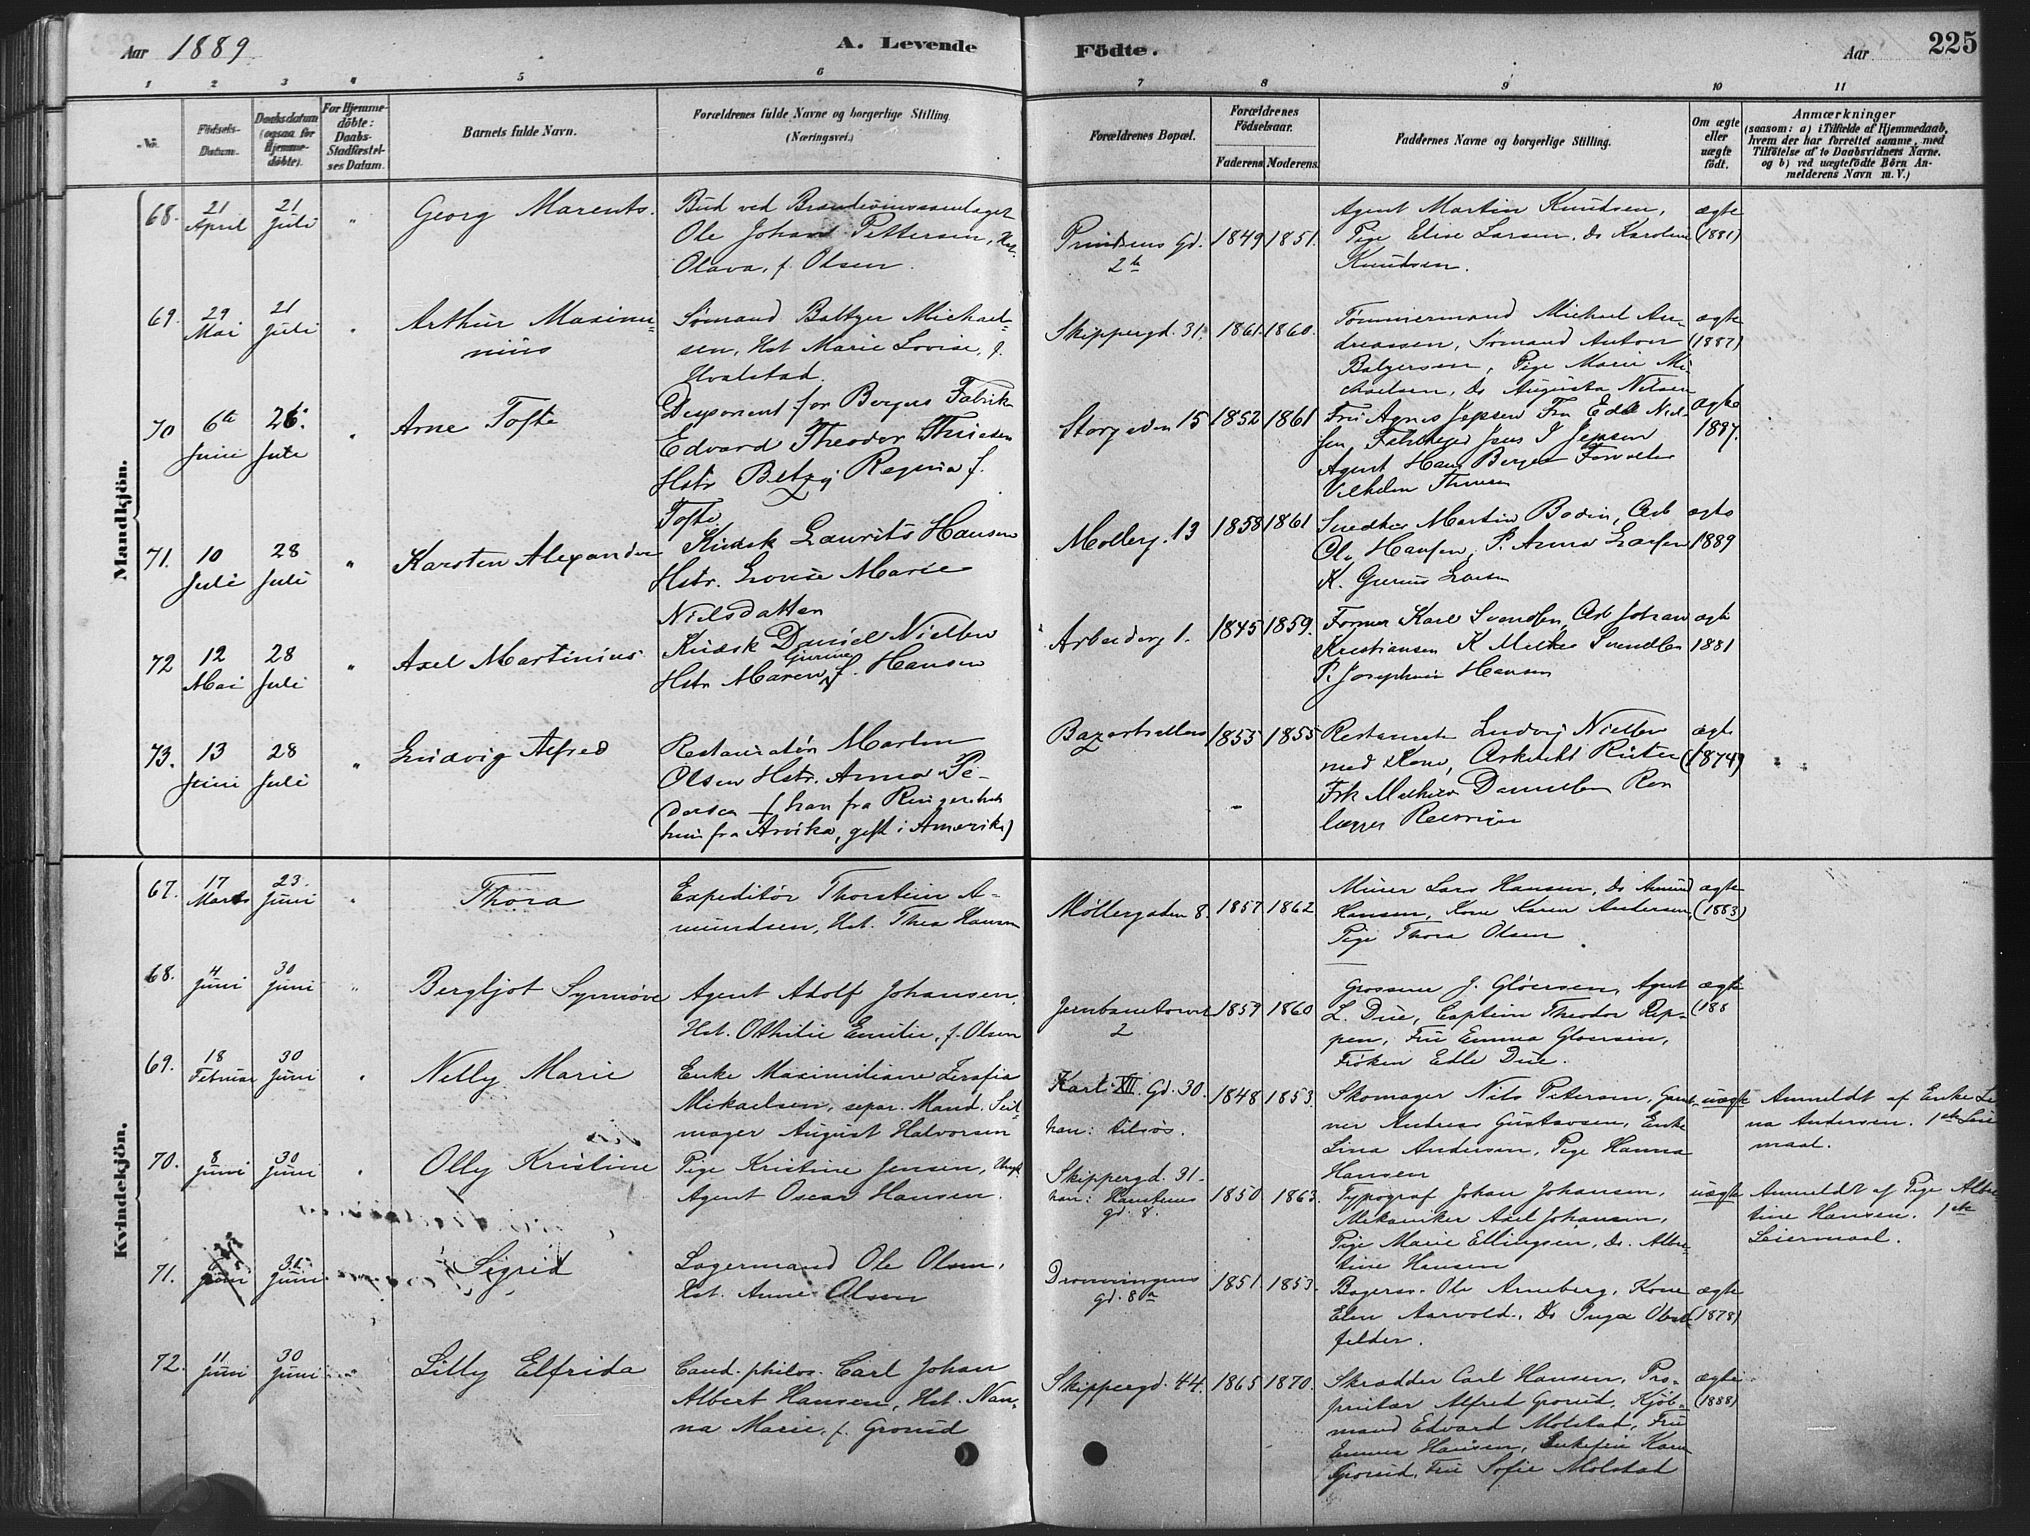 Aar 1889
A. Levende
Födte.
Aar
225
1 2 3 4 5 6 7 8 9 10 11
No.
Födsels-Datum.
Daabsdatum (ogsaa for Hjemme-döbte).
For Hjemme-döbte: Daabs-Stadfæstel-ses Datum.
Barnets fulde Navn.
Forældrenes fulde Navne og borgerlige Stilling.
(Næringsvei.)
Forældrenes Bopæl.
Forældrenes Födselsaar.
Faderens Moderens
Faddernes Navne og borgerlige Stilling.
Om ægte eller uægte födt.
Anmærkninger
(saasom: a) i Tilfælde af Hjemmedaab,
hvem der har forrettet samme, med
Tilföielse af to Daabsvidners Navne.
og b) ved uægtefödte Börn An-
melderens Navn m. V.)
Mandkjön.
68. 21 April 21 Juli " Georg Marents.
Bud ved Brændevinssamlaget
Ole Johan Pettersen, Hst.
Olava, f. Olsen.
Prindsens Gd. 1849 1851.
Agent Martin Knudsen,
Pige Elise Larsen, Do Karoline
Knudsen.
ægte (1881)
69. 29 Mai 21 Juli " Arthur Maximi-
nius
Sømand Baltzer Michael-
sen, Hst Marie Lovise, f.
Hvalstad.
Skippergd. 31. 1861. 1860.
Tømmermand Michael An-
dreassen, Sømand Anton
Balzersen, Pige Marie Mi-
chaelsen, Do Augusta Nilsen
ægte (1887)
70 6te Juni 26. Juli " Arne Tofte
Disponent for Bergers Fabrik
Edvard Theodor Thuesen
Hstr Betzy Regina f.
Tofte
Storgaden 15 1852 1861
Fru Agnes Jepsen Fru Edle Niel-
sen, Jens J Jepsen
Agent Hans Berger
Vilhelm Thuesen
ægte 1887.
71. 10 Juli 28 Juli " Karsten Alexander
Kudsk Laurits Hansen
Hstr. Lovise Marie
Nielsdatter
Mollerg. 13 1858 1861
Snedker Martin Bodin, Arb
Ole Hansen, P. Anna Larsen
K. Larsen
ægte 1889
72 12 Mai 28 Juli " Axel Martinius
Kudsk Daniel Nielsen
Hstr Maren Gurine f. Hansen
Arbeiderg 1. 1845 1859.
Former Karl Svendsen, Arb Johan
Kristiansen K Svendsen
P. Josephine Hansen
ægte 1881
73. 13 Juni 28 Juli " Ludvig Alfred
Restauratør Morten
Olsen Hstr. Anna Pe-
dersen (han fra Ringerike
hun fra Arvika, gift i Amerika)
1855 1855
Restauratør Ludvig Nielsen
med Kone, Arkitekt
Frk Danielsen
ægte (1874)
Kvindekjön.
67. 17 Marts 23. Juni " Thora
Expeditør Thorstein A-
mundsen, Hst. Thea Hansen
Møllergaden 8. 1857 1862
Murer Lars Hansen, Do Amund
Hansen, Kone Karen Andersen,
Pige Thora Olsen
ægte (1883)
68. 4 Juni 30 Juni " Bergljot Synnøve
Agent Adolf Johansen,
Hst. Otthilie Emilie, f. Olsen
Jernbanetorvet 2 1859 1860
Grosserer J. Gløersen, Agent
L. Due, Captein Theodor Rep-
pen, Frü Emma Gloersen,
Frøken Edle Due.
ægte (188
69. 18 Februar 30 Juni " Nelly Marie
Enke Maximiliane Zerafia
Mikaelsen, separ. Mand. Seil-
mager August Halvorsen
Karl XII Gd. 30. 1848 1853.
han: tilsøs.
Skomager Nils Petersen, Gart-
ner Andreas Gustavsen, Enke
Lina Andersen, Pige Hanna
Hansen
uægte
Anmeldt af Enke Li-
na Andersen. 1ste Leier-
maal.
70. 8 Juni 30 Juni " Olly Kristine
Pige Kristine Jensen, Ungk.
Agent Oscar Hansen.
Skippergd. 31. 1850 1863.
han: gd. 8.
Typograf Johan Johansen,
Mekaniker Axel Johansen,
Pige Marie Ellingsen, Do. Albe-
tine Hansen
uægte
Anmeldt af Pige Albe-
tine Hansen. 1ste
Leiermaal.
71. Juni 30. Juni Sigrid
Lagermand Ole Olsen,
Hst. Anne Olsen
Dronningens gd. 8a 1851. 1853.
Bagersv. Ole Arneberg, Kone
Elen Aarvold, Do Inga Obst-
felder.
ægte (1878)
72. 11 Juni 30 Juni " Lilly Elfrida
Cand. philos. Carl Johan
Albert Hansen, Hst. Nan-
na Marie, f. Grorud
Skippergd. 44. 1865 1870.
Skrædder Carl Hansen, Pro-
prietær Alfred Grorud, Kjøb-
mand Edvard Molstad, Frü
Emma Hansen, Enkefru Karen
Grorud, Frü Sofie Molstad
ægte (1888)